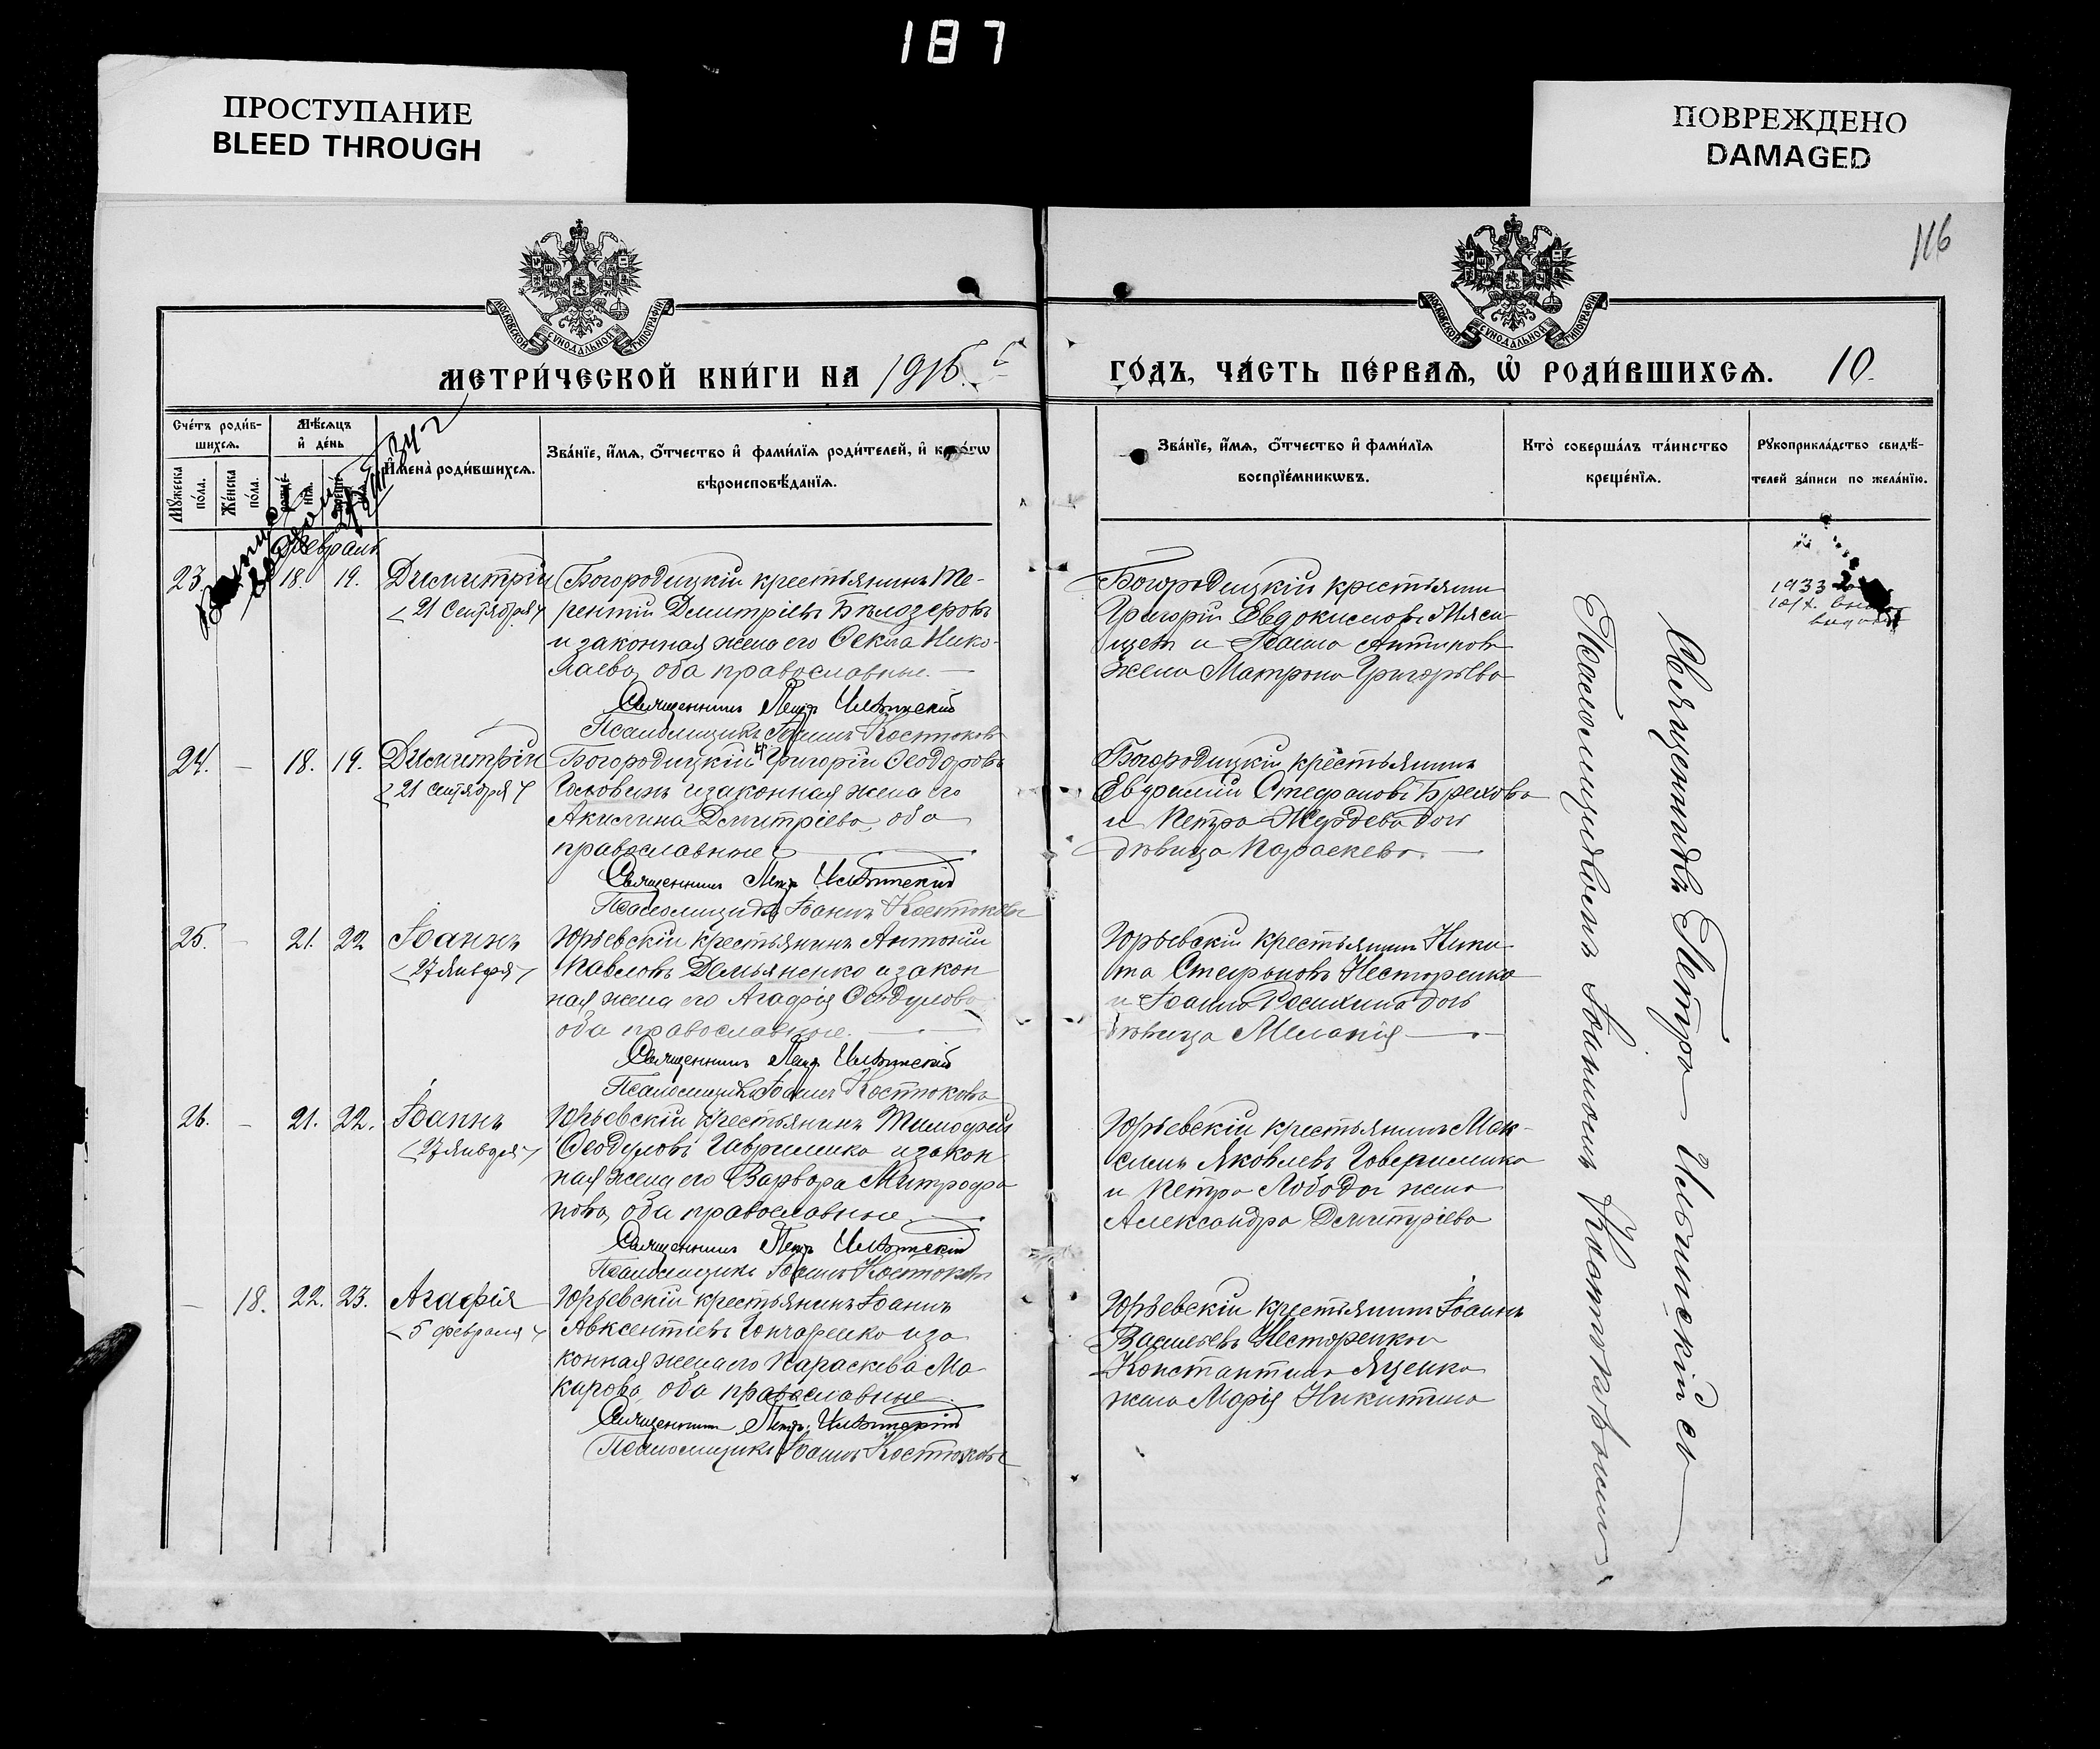 187
ПРОСТУПАНИЕ
BLEED THROUGH
ПОВРЕЖДЕНО
DAMAGED
116
МОСКОВСКОЙ СѴНОДАЛЬНОЙ ТИПОГРАФІИ
МОСКОВСКОЙ СѴНОДАЛЬНОЙ ТИПОГРАФІИ
МЕТРИ́ЧЕСКОЙ КНИ́ГИ НА 1916 ГО́ДЪ, ЧА́СТЬ ПЕ́РВАѦ, Ѡ҆ РОДИ́ВШИХСѦ. 10.
Сче́тъ роди́в-
шихсѧ.
Мꙋ́жеска
по́ла.
Же́нска
по́ла.
Мѣ́сѧцъ
и҆ де́нь
И҆мена̀ роди́вшихсѧ.
Зва́нїе, и҆́мѧ, ѻ҆́тчество и҆ фами́лїѧ роди́телей, и҆
вѣроисповѣ́данїѧ.
Зва́нїе, и҆́мѧ, ѻ҆́тчество и҆ фами́лїѧ
воспрїе́мникѡвъ.
Кто̀ соверша́лъ та́инство
креще́нїѧ.
Рꙋкоприкла́дство свидѣ́-
телей за́писи по жела́нїю.
Февраль
23. 18. 19. Димитрій
21 Сентября
Богородицкій крестьянинъ Те-
рентій Димитріевъ Бѣлозеровъ
и законная жена его Ѳекла Нико-
лаева, оба православные.
Священникъ Петр Ильинскій
Псаломщикъ Іоаннъ Костюковъ
Богородицкій крестьянин
Григорій Евдокимовъ Мяси-
щевъ и Іоанна Антипова
жена Матрона Григорьева
1933
24. — 18. 19. Димитрій
21 сентября
Богородицкій кр. Григорій Ѳеодоровъ
Головинъ и законная жена его
Акилина Димитріева, оба
православные
Священникъ Петр Ильинскій
Псаломщикъ Іоаннъ Костюковъ
Богородицкій крестьянинъ
Евфимій Стефановъ Брехова
и Петра Жердева дочь
дѣвица Параскева.
25. — 21. 22 Іоаннъ
27 Января
Юрьевскій крестьянинъ Антоній
Павловъ Демьяненко и закон
ная жена его Агафія Ѳеодулова
оба православные.
Священникъ Петр Ильинскій
Псаломщикъ Іоаннъ Костюковъ
Юрьевскій крестьянин Ники-
та Стефановъ Нестеренко
и Іоанна дочь
дѣвица Меланія
26. — 21. 22. Іоаннъ
27 Января
Юрьевскій крестьянинъ Тимофей
Ѳеодуловъ Гаврилика и закон
ная жена его Варвара Митрофа
нова, оба православные
Священникъ Петр Ильинскій
Псаломщикъ Іоаннъ Костюковъ
Юрьевскій крестьянинъ Мак-
симъ Яковлевъ
и Петра Лобода жена
Александра Димитріева
— 18. 22. 23. Агафія
5 февраля
Юрьевскій крестьянинъ Іоаннъ
Авксентіевъ Гончаренко и за
конная жена его Параскева Ма-
карова, оба православные
Священникъ Петръ Ильинскій
Псаломщикъ Іоаннъ Костюковъ
Юрьевскій крестьянинъ Іоаннъ
Васильевъ Нестеренко и
Константина Яценко
жена Марія Никитина
Священникъ Петръ Ильинскій съ
Псаломщикомъ Іоанномъ Костюковымъ